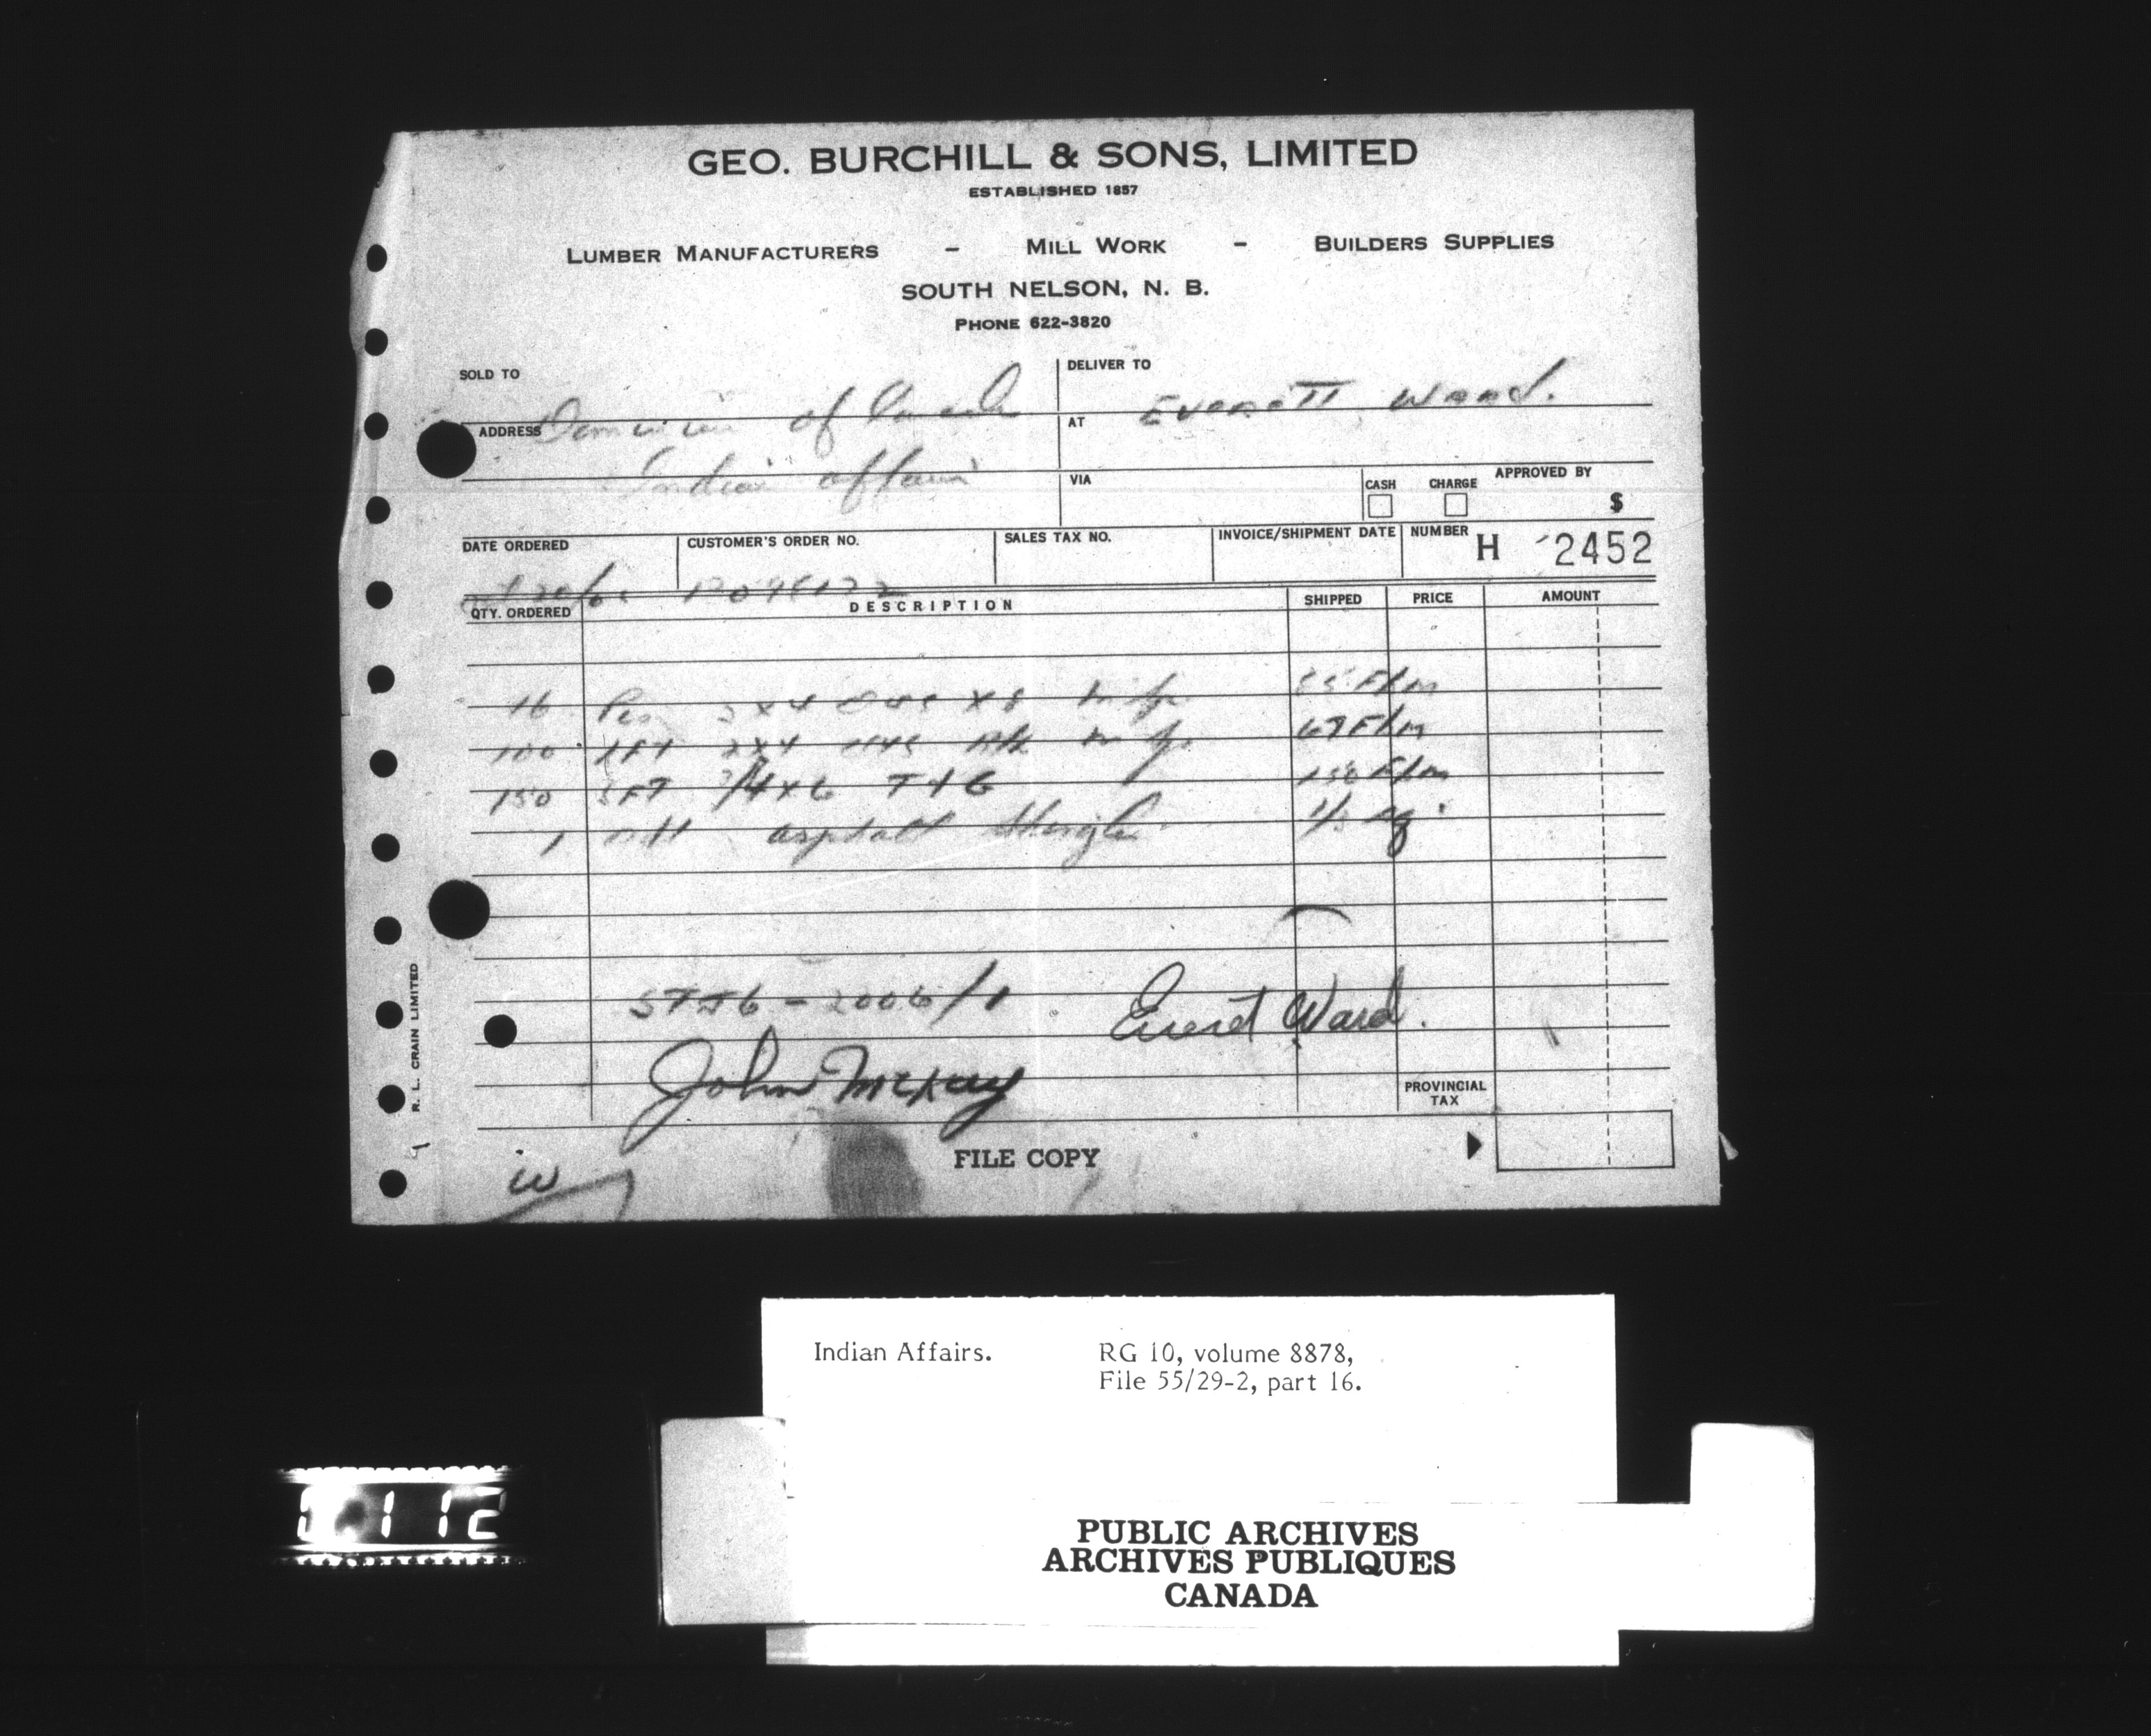 GEO. BURCHILL & SONS, LIMITED
ESTABLISHED 1857
LUMBER MANUFACTURERS - MILL WORK - BUILDERS SUPPLIES
SOUTH NELSON, N. B.
PHONE 622-3820
SOLD TO
DELIVER TO
ADDRESS Dominion of Canada
AT Everett Ward.
Indian Affairs
VIA
CASH CHARGE APPROVED BY
$
DATE ORDERED CUSTOMER'S ORDER NO. SALES TAX NO. INVOICE/SHIPMENT DATE NUMBER H 2452
QTY. ORDERED DESCRIPTION SHIPPED PRICE AMOUNT
16 Pcs 2x4 x8
100 LFT 2x4 67 Fbm
150 SFT 3/4x6 T+G 150 Fbm
1 asphalt shingle 1/3 sq.
/1 Everet Ward.
John McKay
PROVINCIAL
TAX
FILE COPY
W
R. L. CRAIN LIMITED
Indian Affairs. RG 10, volume 8878,
File 55/29-2, part 16.
112
PUBLIC ARCHIVES
ARCHIVES PUBLIQUES
CANADA